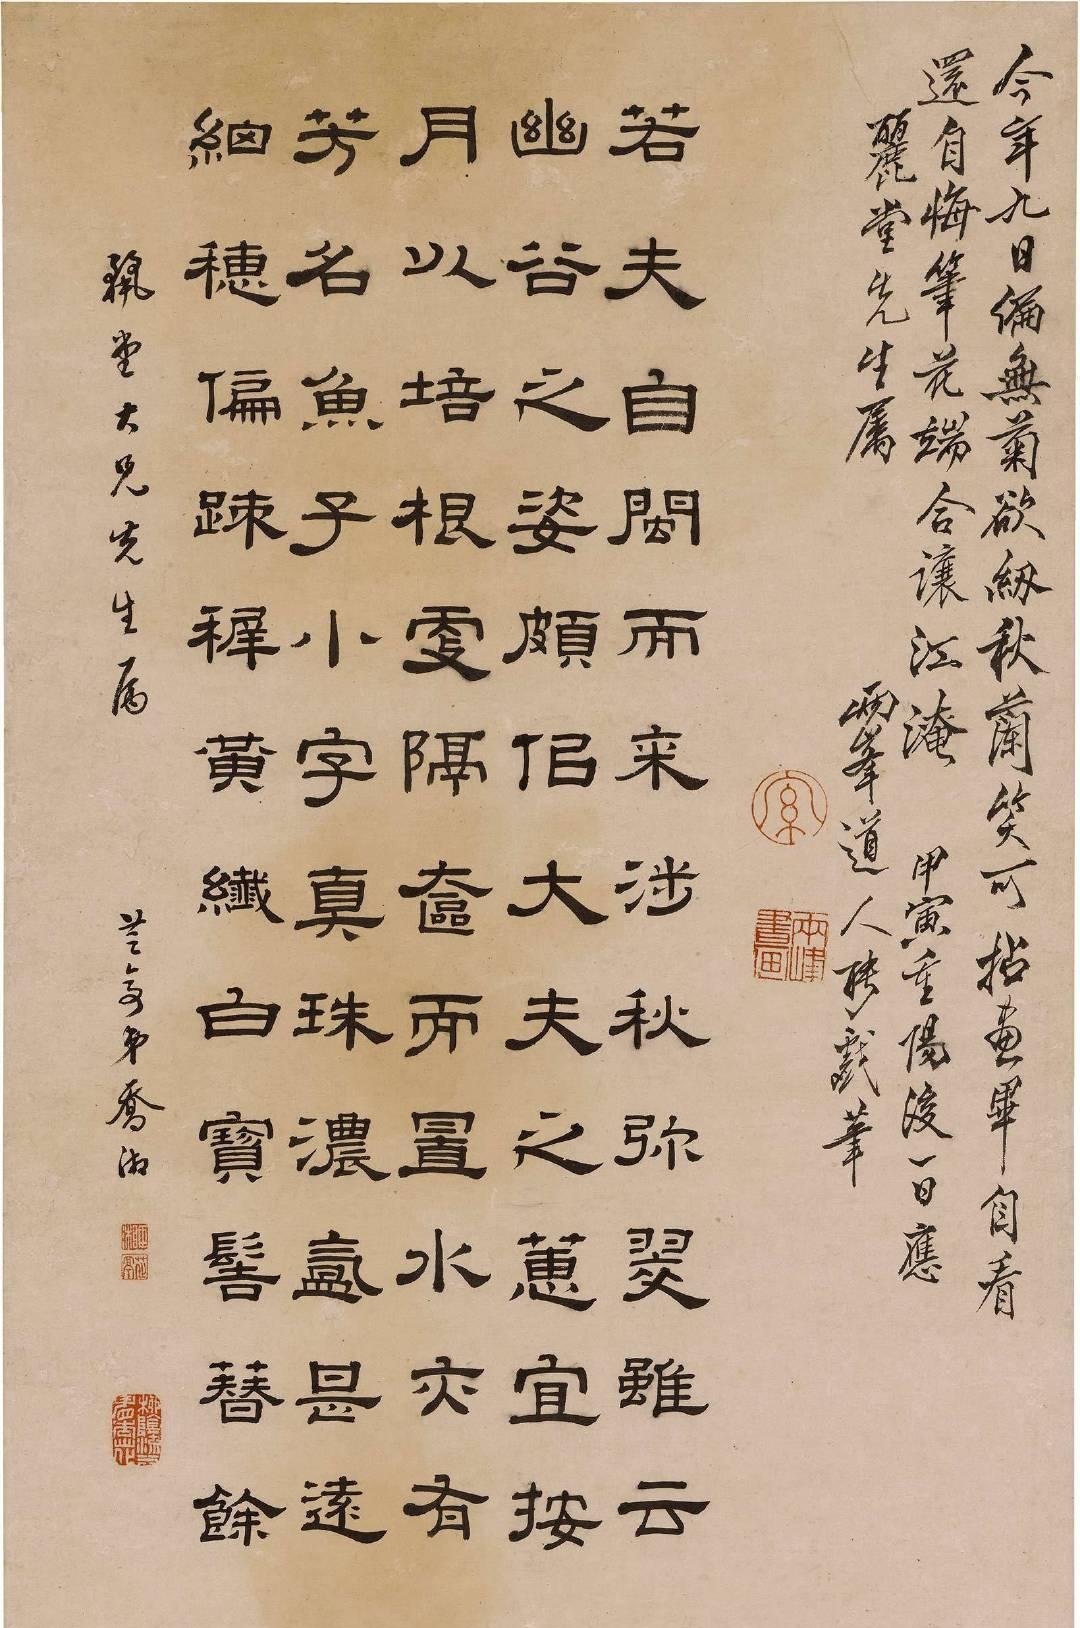 今年九日偏無菊欲紉秋蘭笑可拈畫畢自看
還自悔筆花端合讓江淹 甲寅重陽後一日應
麗堂先生屬 兩峯道人聘戲筆
兩峰書画
若夫自閩而来涉秋弥翠雖云
幽谷之姿頗佀大夫之蕙宜按
月以培根更隔奩而置水亦有
芳名魚子小字真珠濃盍是遠
細穗偏踈穉黄纖白寶髻替餘
堂大兄先生属 弟喬